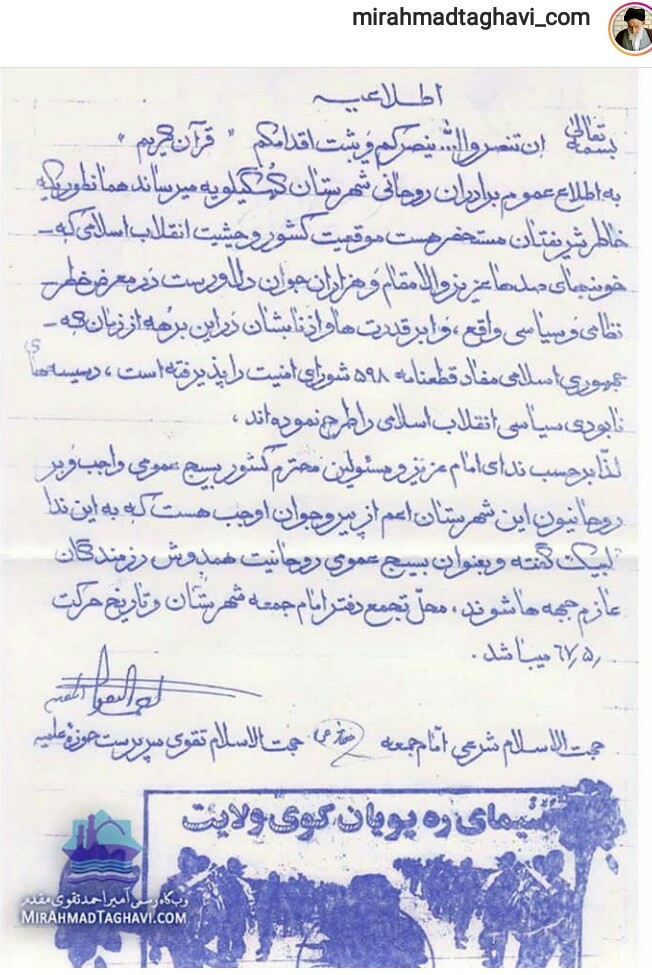 mirahmadtaghavi_com
اطلاعیه
بسمه تعالی
ان تنصروالله ینصرکم و یثبت اقدامکم " قرآن کریم "
به اطلاع عموم برادران روحانی شهرستان کهگیلویه میرساند همانطوریکه
خاطر شریفتان مستحضر هست موقعیت کشور و حیثیت انقلاب اسلامی که -
خونبهای صدها عزیز والامقام و هزاران جوان دلاور است در معرض خطر -
نظامی و سیاسی واقع ، و ابرقدرت ها و اذنابشان در این برهه از زمان که -
جمهوری اسلامی مفاد قطعنامه ۵۹۸ شورای امنیت را پذیرفته است ، دسیسه های
نابودی سیاسی انقلاب اسلامی را طرح نموده اند ،
لذا بر حسب ندای امام عزیز و مسئولین محترم کشور بسیج عمومی واجب و بر
روحانیون این شهرستان اعم از پیر و جوان اوجب هست که به این ندا
لبیک گفته و بعنوان بسیج عمومی روحانیت همدوش رزمندگان
عازم جبهه ها شوند ، محل تجمع دفتر امام جمعه شهرستان و تاریخ حرکت
/۵/۶۷ میباشد .
حجت الاسلام شرعی امام جمعه
حجت الاسلام تقوی سرپرست حوزه علمیه
سیمای ره پویان کوی ولایت
وبگاه رسمی آمیراحمد تقوی مقدم
MIRAHMADTAGHAVI.COM